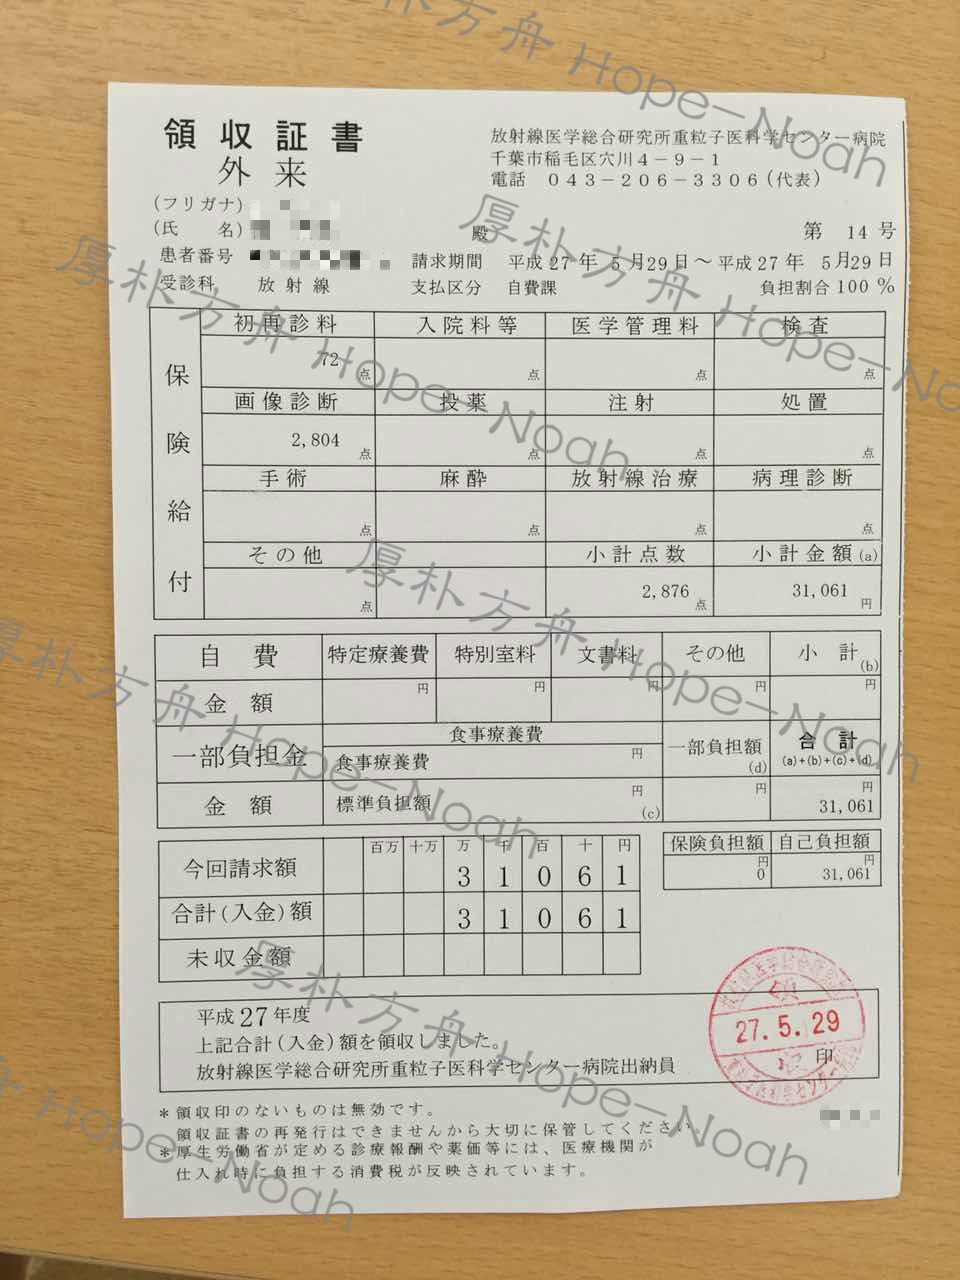 領収証書
外来
放射線医学総合研究所重粒子医科学センター病院
千葉市稲毛区穴川4-9-1
電話 043-206-3306(代表)
(フリガナ)
(氏 名) 殿 第 14号
患者番号 請求期間 平成27年 5月29日～平成27年 5月29日
受診科 放射線 支払区分 自費課 負担割合100%
保険給付
初再診料 入院料等 医学管理料 検査
72点 点 点 点
画像診断 投薬 注射 処置
2,804点 点 点 点
手術 麻酔 放射線治療 病理診断
点 点 点 点
その他 小計点数 小計金額(a)
点 2,876点 31,061円
自費 特定療養費 特別室料 文書料 その他 小計(b)
金額 円 円 円 円 円
一部負担金 食事療養費 一部負担額(d) 合計
(a)+(b)+(c)+(d)
食事療養費 円
金額 標準負担額 円(c) 円 円
31,061
百万 十万 万 千 百 十 円
今回請求額 3 1 0 6 1
合計(入金)額 3 1 0 6 1
未収金額
保険負担額 自己負担額
円 円
0 31,061
平成27年度
上記合計(入金)額を領収しました。
放射線医学総合研究所重粒子医科学センター病院出納員 印
27.5.29
*領収印のないものは無効です。
領収証書の再発行はできませんから大切に保管してください。
*厚生労働省が定める診療報酬や薬価等には、医療機関が
仕入れ時に負担する消費税が反映されています。
厚朴方舟 Hope-Noah
厚朴方舟 Hope-Noah
厚朴方舟 Hope-Noah
厚朴方舟 Hope-Noah
厚朴方舟 Hope-Noah
厚朴方舟 Hope-Noah